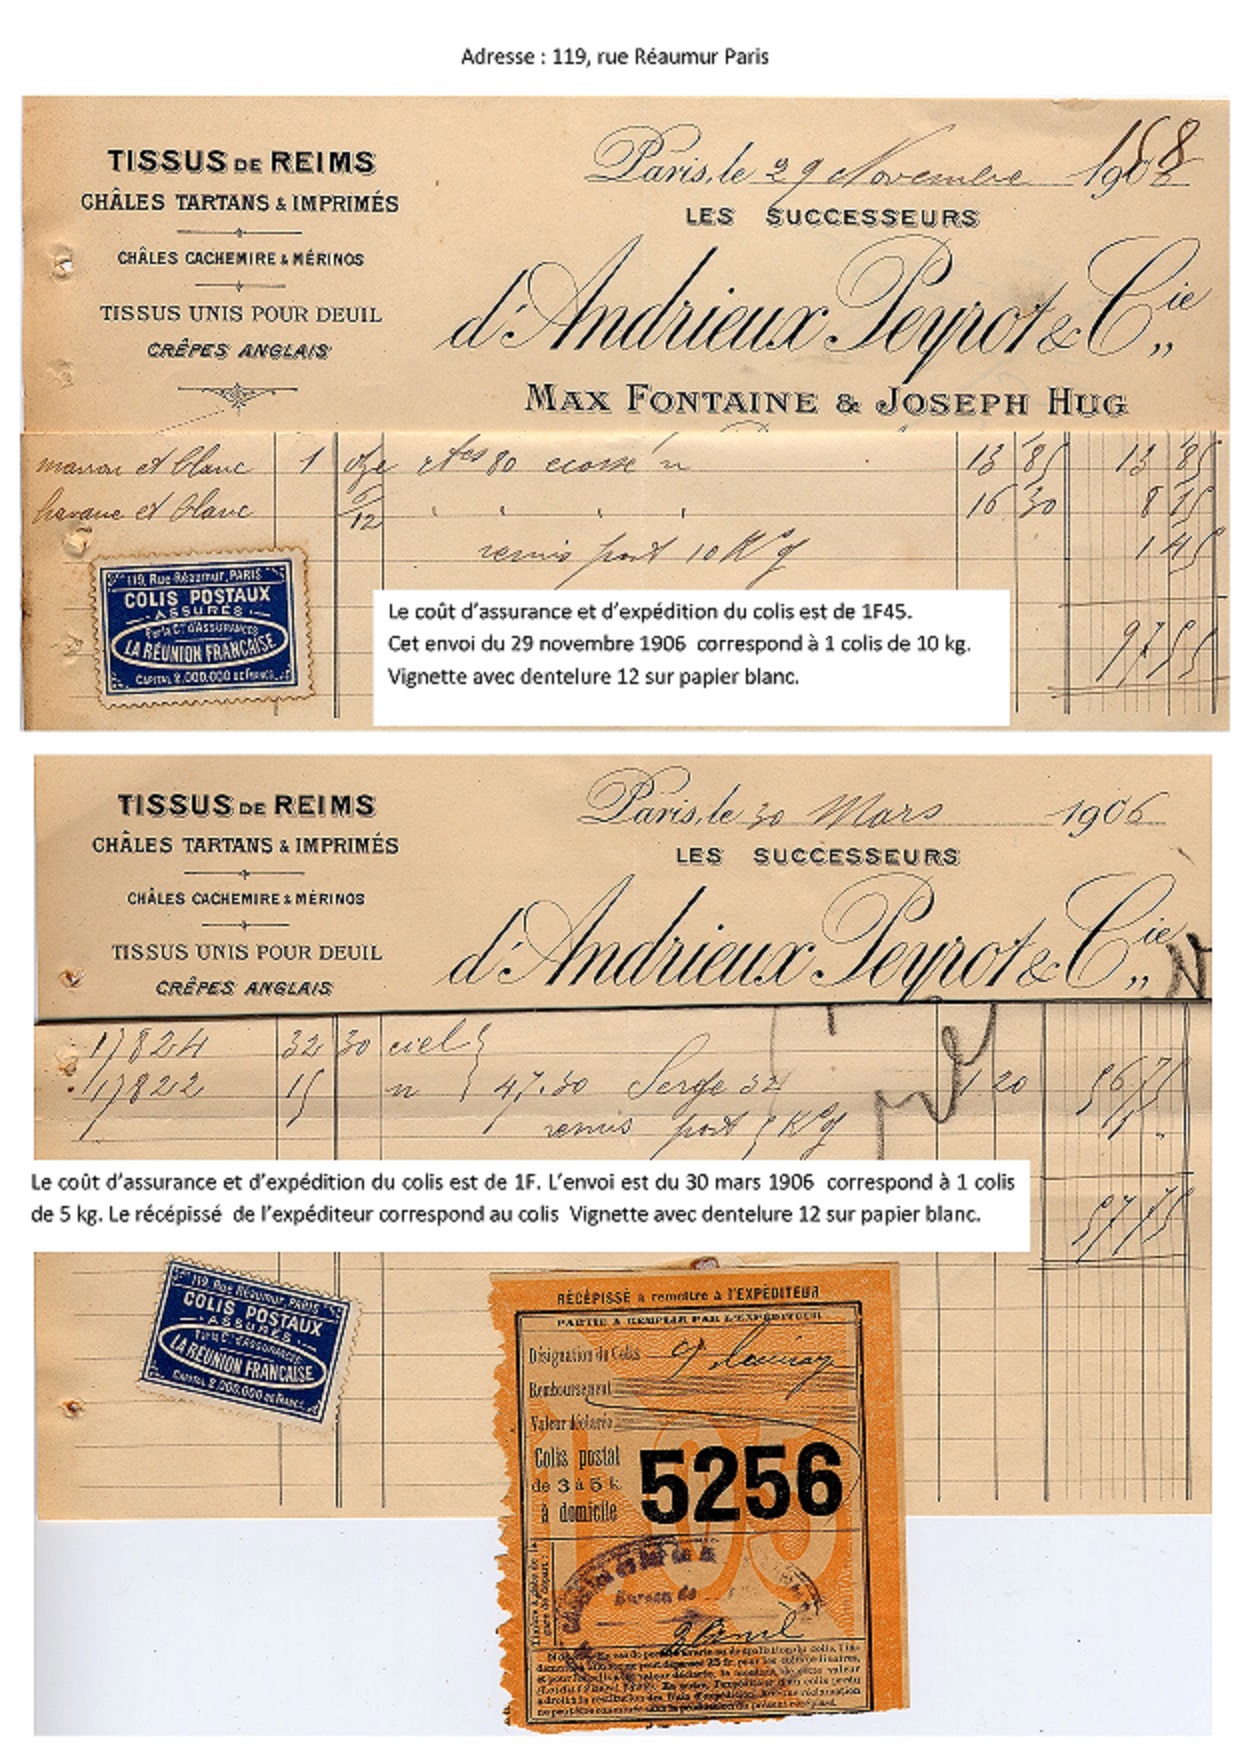 Adresse : 119, rue Réaumur Paris
TISSUS DE REIMS
CHÂLES TARTANS & IMPRIMÉS
CHÂLES CACHEMIRE & MÉRINOS
TISSUS UNIS POUR DEUIL
CRÊPES ANGLAIS
158
Paris, le 29 Novembre 190
LES SUCCESSEURS
d'Andrieux Peyrot & Cie
MAX FONTAINE & JOSEPH HUG
marron et blanc 1 80 ecosse n 13 85 13 85
havane et blanc /12 16 30 8 15
remis port 10 Kg 1 45
119, Rue Réaumur, PARIS
COLIS POSTAUX
ASSURÉS
Par la Cie d'ASSURANCES
LA RÉUNION FRANÇAISE
CAPITAL 2.000.000 DE FRANCS
Le coût d'assurance et d'expédition du colis est de 1F45.
Cet envoi du 29 novembre 1906 correspond à 1 colis de 10 kg.
Vignette avec dentelure 12 sur papier blanc.
TISSUS DE REIMS
CHÂLES TARTANS & IMPRIMÉS
CHÂLES CACHEMIRE & MÉRINOS
TISSUS UNIS POUR DEUIL
CRÊPES ANGLAIS
Paris, le 30 Mars 1906
LES SUCCESSEURS
d'Andrieux Peyrot & Cie
17824 32 30 ciel
17822 15 n 47.30 Serge 1 20 56 75
remis port 5 Kg 1
57 75
Le coût d'assurance et d'expédition du colis est de 1F. L'envoi est du 30 mars 1906 correspond à 1 colis
de 5 kg. Le récépissé de l'expéditeur correspond au colis Vignette avec dentelure 12 sur papier blanc.
119, Rue Réaumur, PARIS
COLIS POSTAUX
ASSURÉS
Par la Cie d'ASSURANCES
LA RÉUNION FRANÇAISE
CAPITAL 2.000.000 DE FRANCS
RÉCÉPISSÉ à remettre à l'EXPÉDITEUR
PARTIE À REMPLIR PAR L'EXPÉDITEUR
Désignation du Colis
Remboursement
Valeur déclarée
Colis postal
de 3 à 5 k.
à domicile
5256
Bureau de